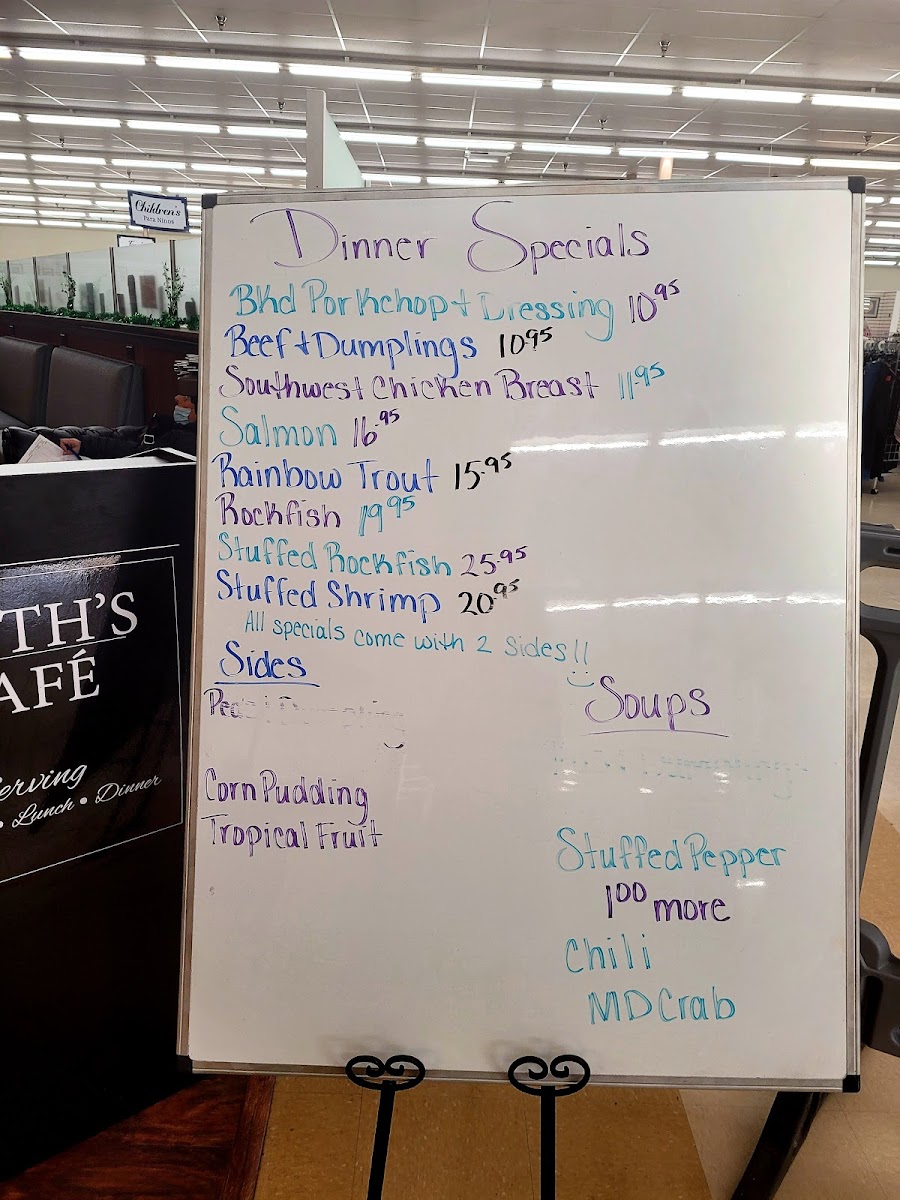 Children's
Para Ninos
Dinner Specials
Bkd Porkchop + Dressing 10 95
Beef + Dumplings 10 95
Southwest Chicken Breast 11.95
Salmon 16.95
Rainbow Trout 15.95
Rockfish 19 95
Stuffed Rockfish 25.95
Stuffed Shrimp 20.95
All specials come with 2 sides!!
Sides
Corn Pudding
Tropical Fruit
Soups
Stuffed Pepper
1 00 more
Chili
MD Crab
TH'S
AFÉ
erving
• Lunch • Dinner